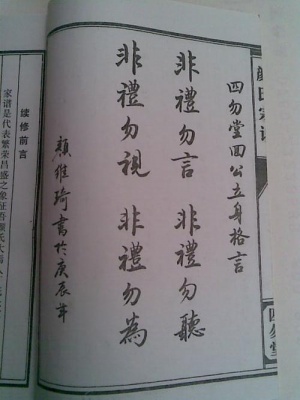 顏氏宗譜
四勿堂
四勿堂回公立身格言
非禮勿言 非禮勿聽
非禮勿視 非禮勿為
顏維琦書於庚辰年
续修前言
家谱是代表繁荣昌盛之象征吾颜氏大